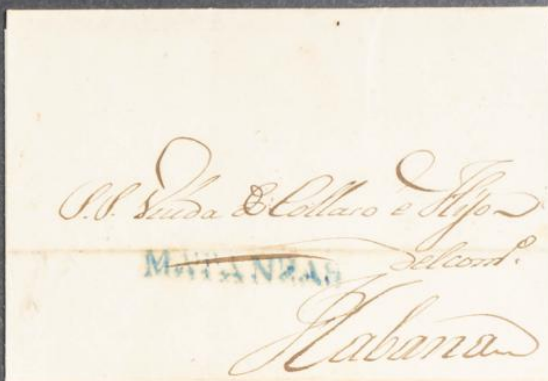 S.S. Viuda de Collazo é Hijo
MATANZAS
Delcom.º
Habana